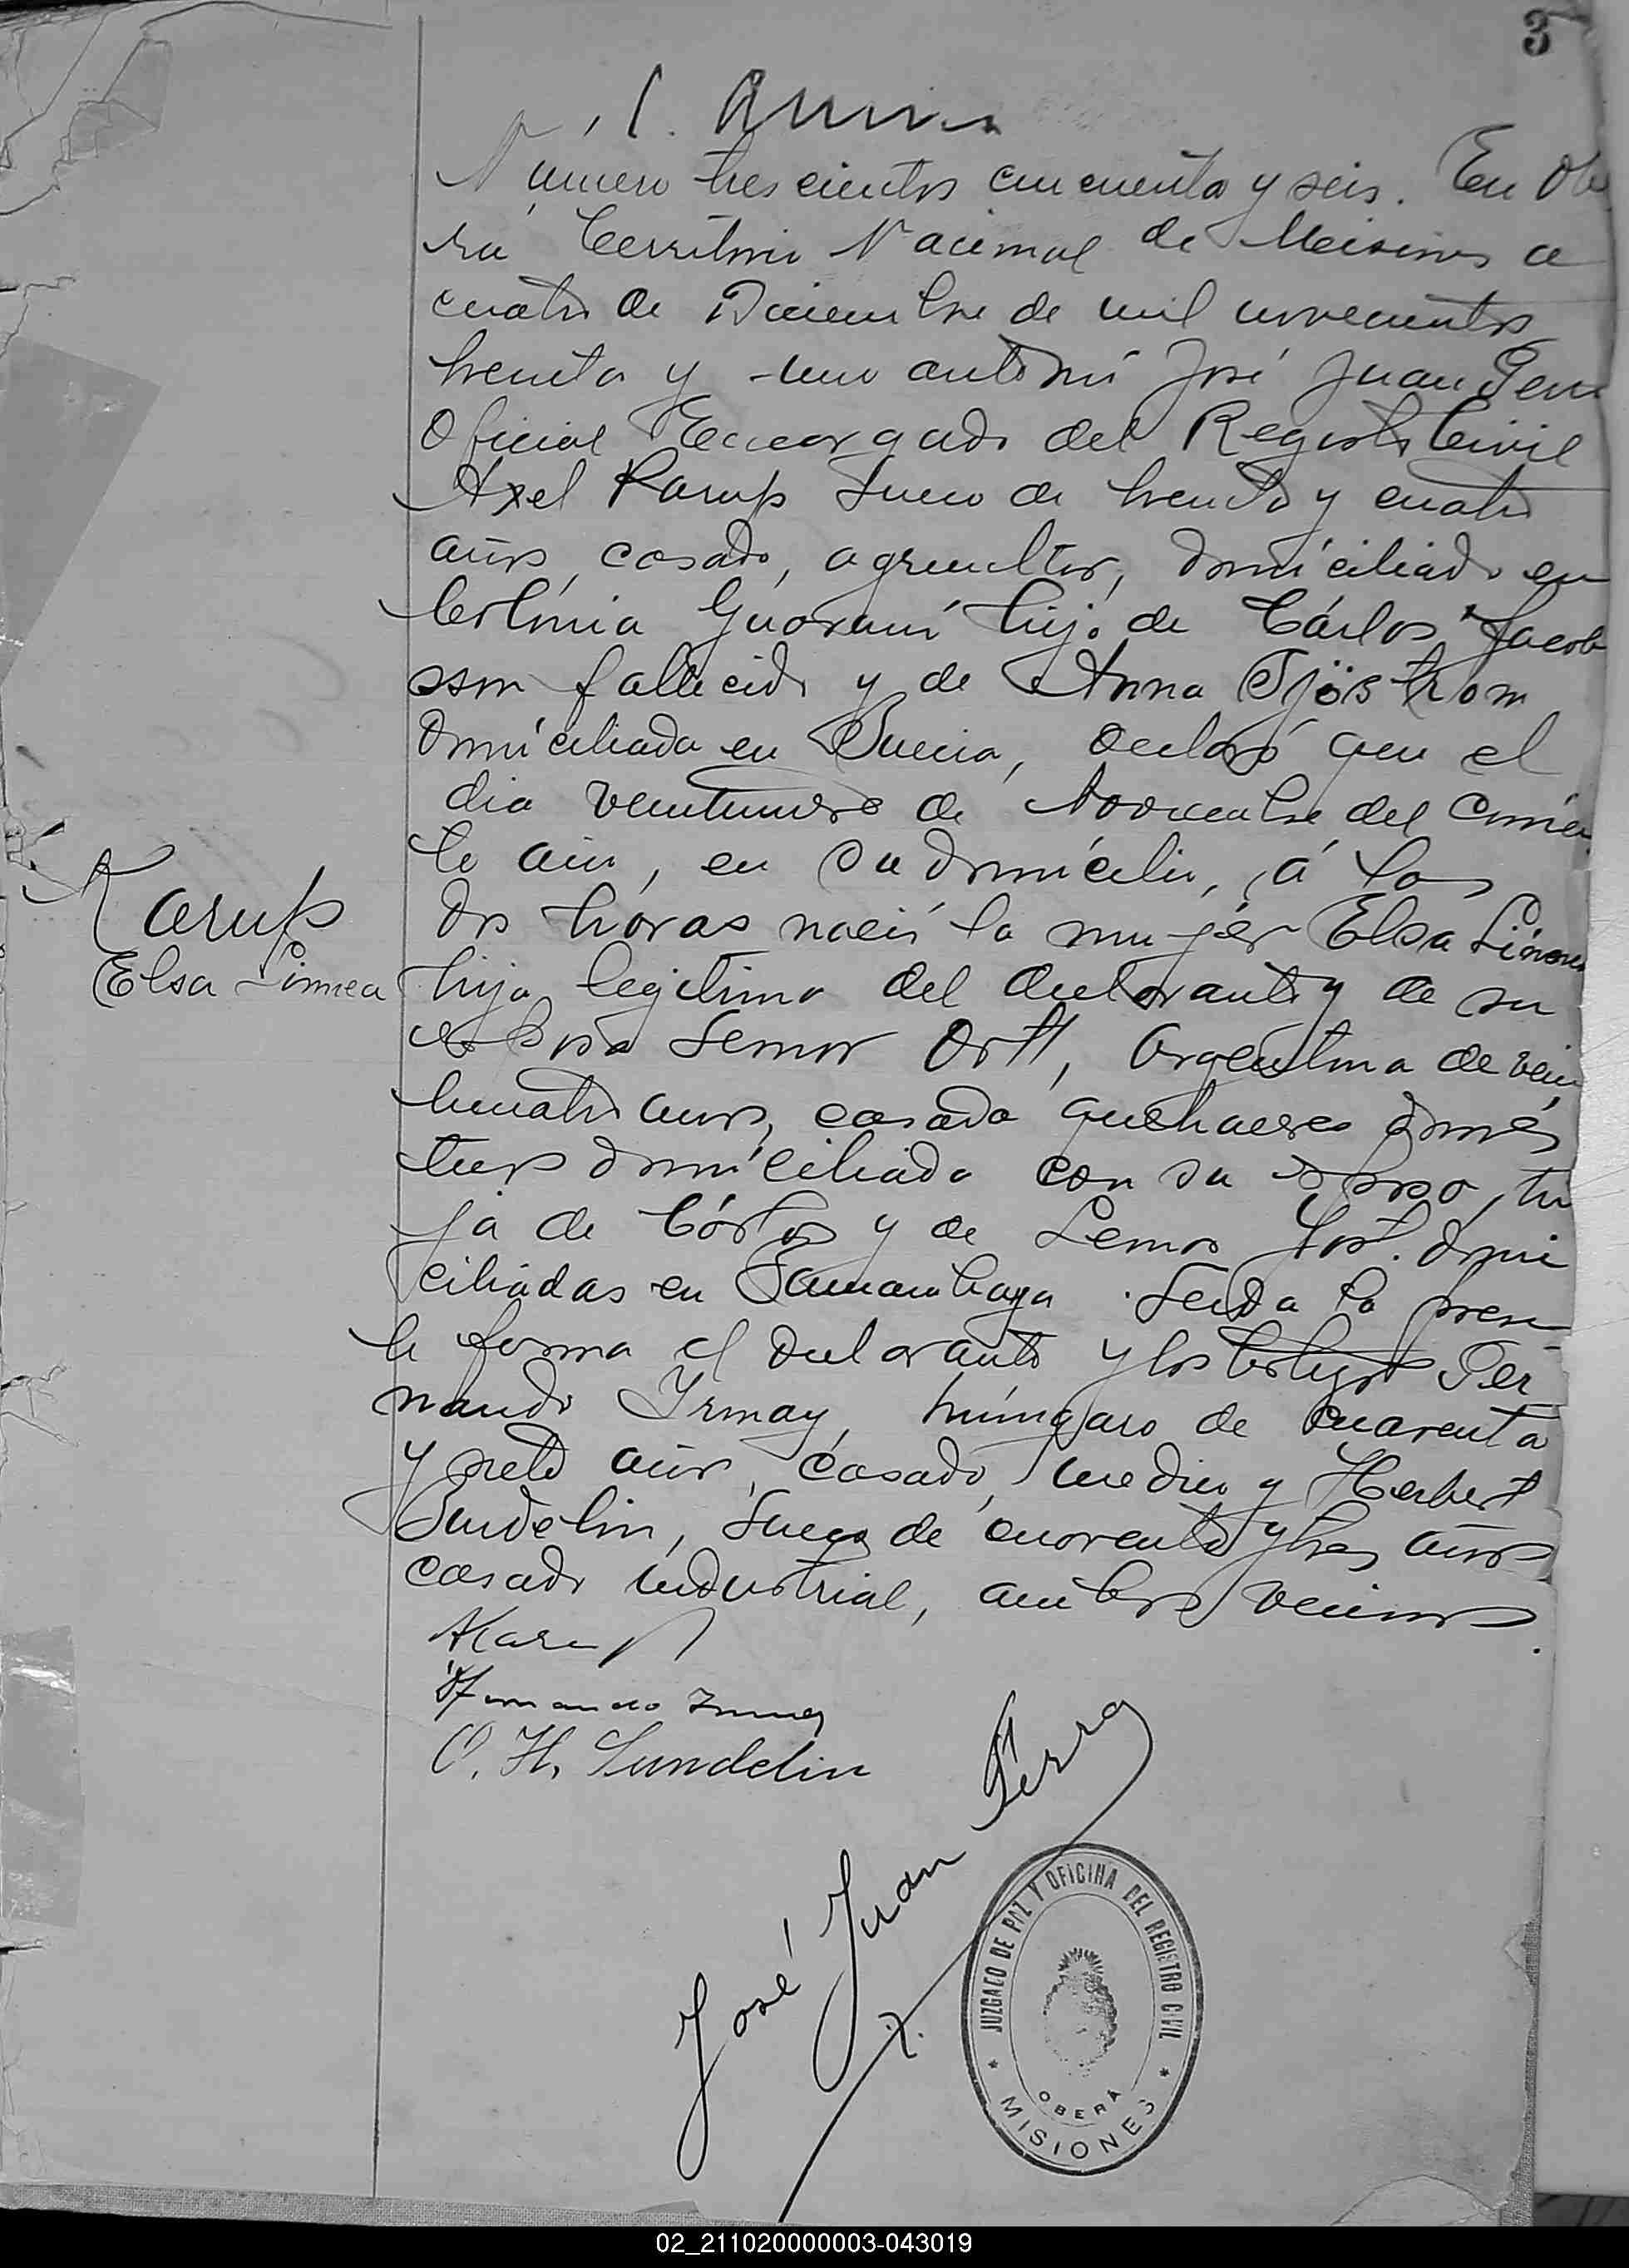 3
Número trescientos cincuenta y seis. En Obe
ra Territorio Nacional de Misiones a
cuatro de Diciembre de mil novecientos
treinta y uno ante mí José Juan Perra
Oficial Encargado del Registro Civil
Axel Karup sueco de treinta y cuatro
años, casado, agricultor, domiciliado en
Colónia Guaraní hijo de Cárlos Jacob
sson fallecido y de Anna Sjöström
domiciliada en Suecia, declaró que el
dia veintinueve de Noviembre del corrien
te año, en su domicilio, á las
dos horas nació la mujer Elsa Linnea
Karup
Elsa Linnea
hija legitima del declarante y de su
esposa Lenor Ortt, argentina de vein
ticuatro años, casada quehaceres domés
ticos domiciliada con su esposo, hi
ja de Cárlos y de Lenor domi
ciliadas en Samambaya. Leida la presen
te forma el declarante y los testigos Fer
nando Irmay, húngaro de cuarenta
y siete años, casado, medico y Herbert
Sundelin, sueco de cuarenta y tres años
casado industrial, ambos vecinos.
AKarup
Fernando Irmay
O. H. Sundelin
José Juan Perra
JUZGADO DE PAZ Y OFICINA DEL REGISTRO CIVIL
OBERÁ
* MISIONES *
02_211020000003-043019